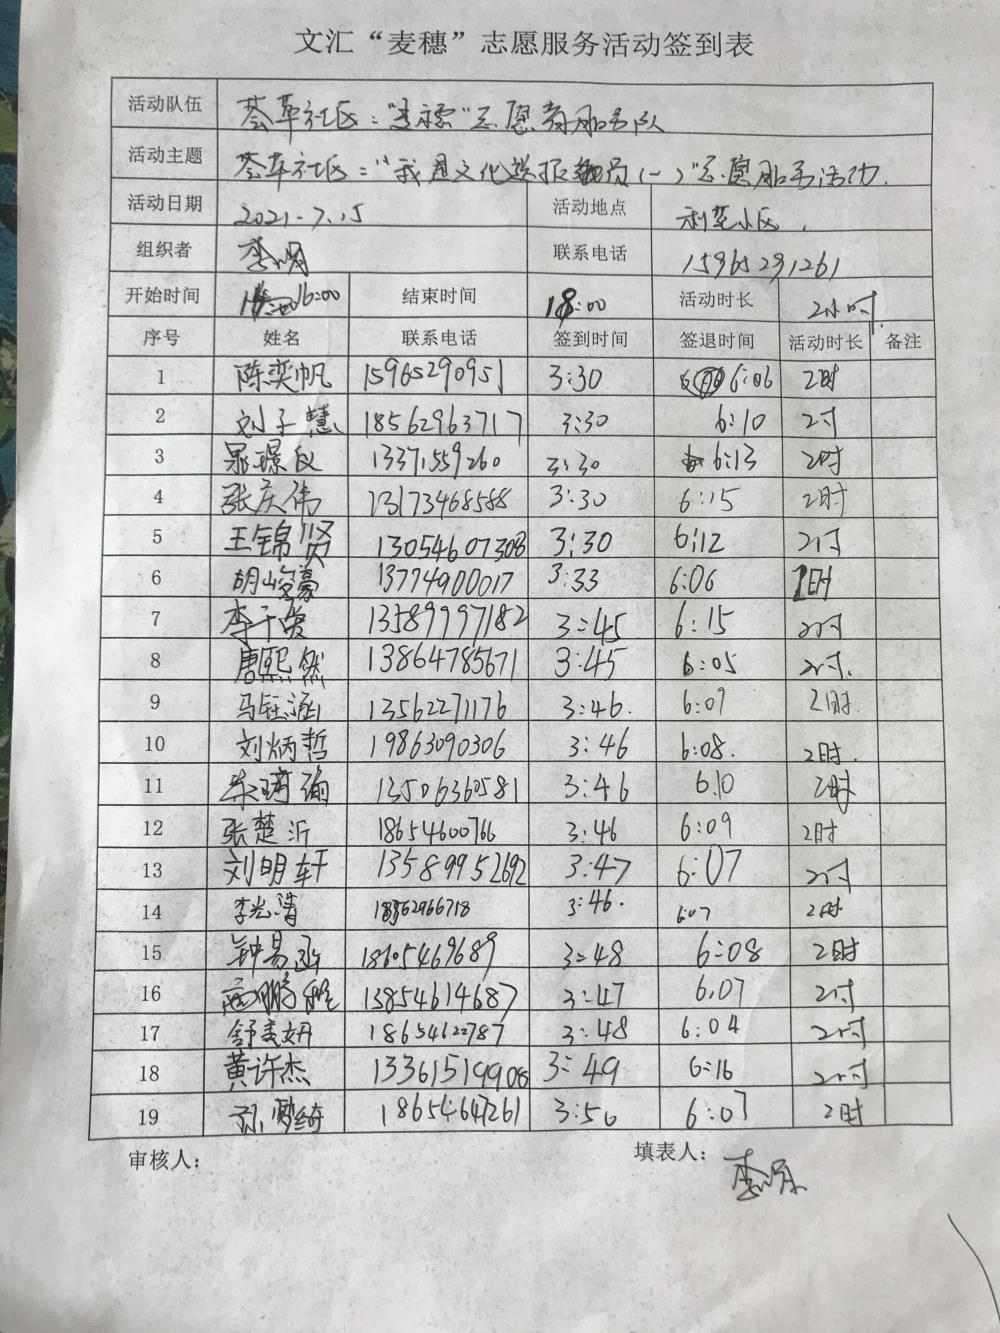 文汇“麦穗”志愿服务活动签到表
活动队伍 荟萃社区:“麦穗”志愿者服务队
活动主题 荟萃社区:“我是文化送报员(一)”志愿服务活动.
活动日期 2021.7.15 活动地点 利苑小区.
组织者 联系电话 15965291261
开始时间 16:00 结束时间 18:00 活动时长 2小时
序号 姓名 联系电话 签到时间 签退时间 活动时长 备注
1 陈奕帆 15965290951 3:30 6:06 2时
2 刘子慧 18562963717 3:30 6:10 2时
3 晁璟仪 13371559260 3:30 6:13 2时
4 张庆伟 13173468588 3:30 6:15 2时
5 王锦贤 13054607308 3:30 6:12 2时
6 胡峻豪 13774900017 3:33 6:06 1时
7 李 13589997182 3:45 6:15 2时
8 唐熙然 13864785671 3:45 6:05 2时.
9 马钰涵 13562271176 3:46. 6:07 2时.
10 刘炳哲 19863090306 3:46 6:08. 2时.
11 13506360581 3:46 6.10 2时
12 张楚沂 18654600766 3:46 6:09 2时
13 刘明轩 13589952692 3:47 6:07 2时
14 李光清 18562966718 3:46. 6:07 2时
15 钟易函 18605469689 3:48 6:08 2时
16 13854614687 3:47 6.07 2时
17 舒美妍 18654622787 3:48 6:04 2时
18 黄许杰 13361519908 3:49 6:16 2时
19 孙梦绮 18654647261 3:50 6:07 2时
审核人: 填表人: